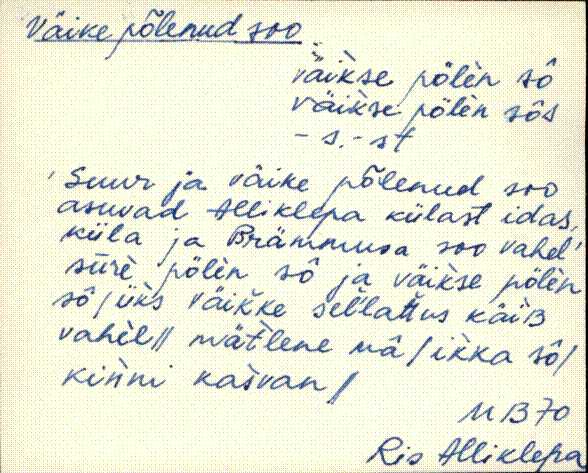 Väike põlenud soo
väikse pölèn sô
väikse pölèn sôs
- s, - st
'Suur ja väike põlenud soo
asuvad Alliklepa külast idas,
küla ja Brämmusa soo vahel'
sūrè pölèn sô ja väikse pölèn
sô / üks väikke sellattus käiB
vahèl // mätlene mâ / ikka sô /
kinni kasvan /
M B 70
Ris Alliklepa